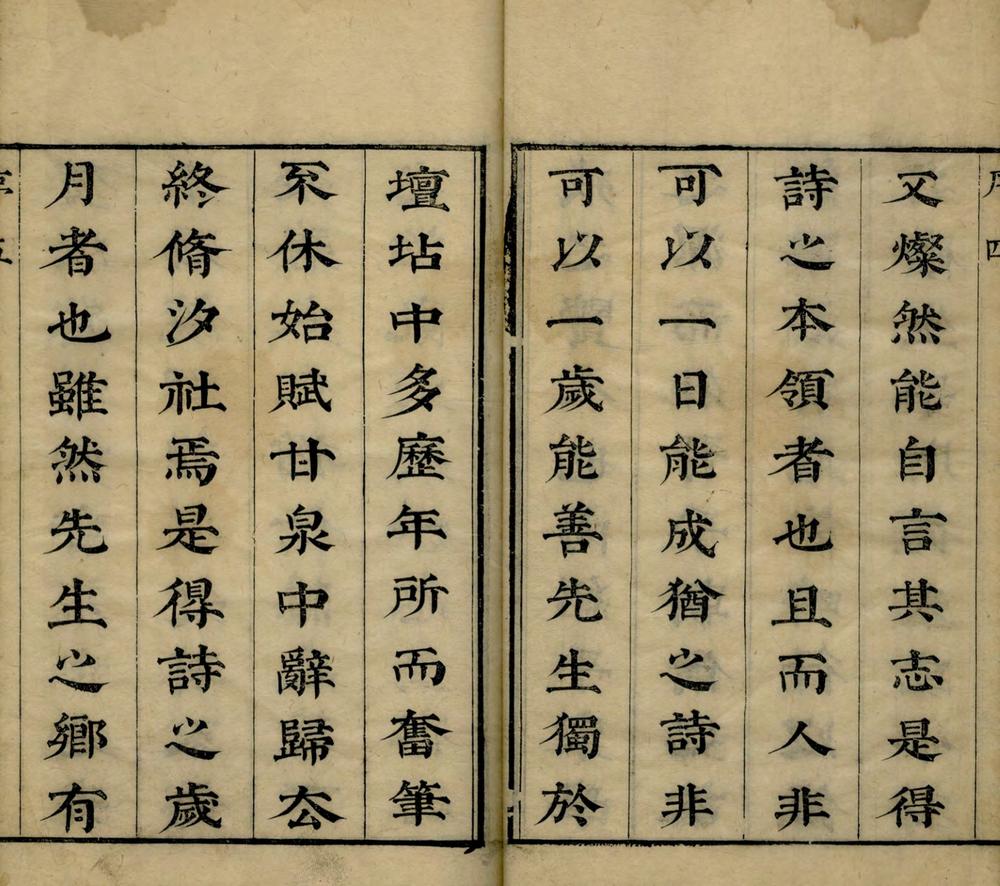 序 四
又燦然能自言其志是得
詩之本領者也且而人非
可以一日能成猶之詩非
可以一歲能善先生獨於
壇坫中多歷年所而奮筆
不休始賦甘泉中辭歸公
終脩汐社焉是得詩之歲
月者也雖然先生之鄉有
序 五